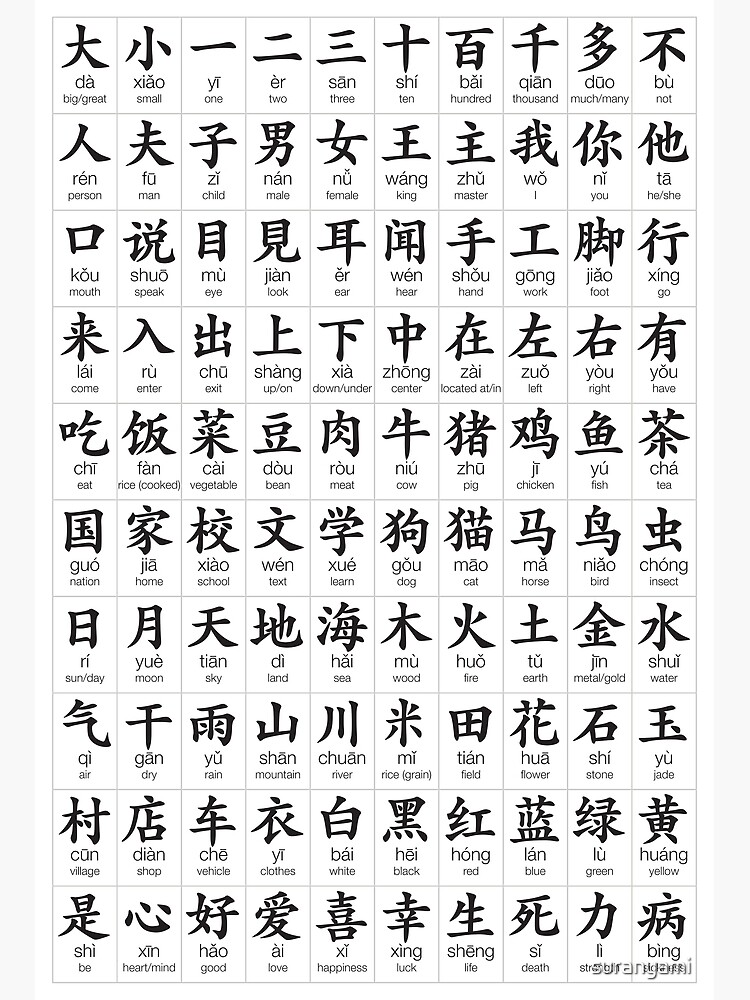 大 小 一 二 三 十 百 千 多 不
dà xiǎo yī èr sān shí bǎi qiān duō bù
big/great small one two three ten hundred thousand much/many not
人 夫 子 男 女 王 主 我 你 他
rén fū zǐ nán nǚ wáng zhǔ wǒ nǐ tā
person man child male female king master I you he/she
口 说 目 見 耳 闻 手 工 脚 行
kǒu shuō mù jiàn ěr wén shǒu gōng jiǎo xíng
mouth speak eye look ear hear hand work foot go
来 入 出 上 下 中 在 左 右 有
lái rù chū shàng xià zhōng zài zuǒ yòu yǒu
come enter exit up/on down/under center located at/in left right have
吃 饭 菜 豆 肉 牛 猪 鸡 鱼 茶
chī fàn cài dòu ròu niú zhū jī yú chá
eat rice (cooked) vegetable bean meat cow pig chicken fish tea
国 家 校 文 学 狗 猫 马 鸟 虫
guó jiā xiào wén xué gǒu māo mǎ niǎo chóng
nation home school text learn dog cat horse bird insect
日 月 天 地 海 木 火 土 金 水
rí yuè tiān dì hǎi mù huǒ tǔ jīn shuǐ
sun/day moon sky land sea wood fire earth metal/gold water
气 干 雨 山 川 米 田 花 石 玉
qì gān yǔ shān chuān mǐ tián huā shí yù
air dry rain mountain river rice (grain) field flower stone jade
村 店 车 衣 白 黑 红 蓝 绿 黄
cūn diàn chē yī bái hēi hóng lán lù huáng
village shop vehicle clothes white black red blue green yellow
是 心 好 爱 喜 幸 生 死 力 病
shì xīn hǎo ài xǐ xìng shēng sǐ lì bìng
be heart/mind good love happiness luck life death
surangami